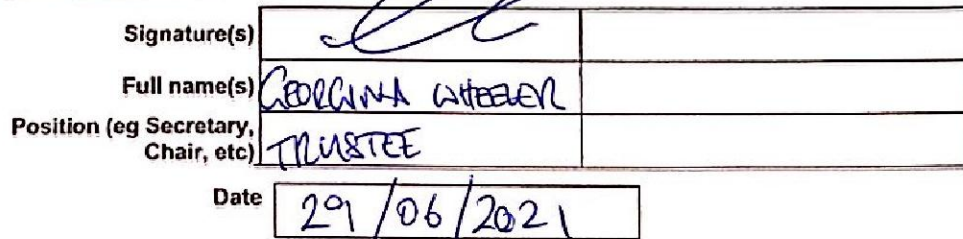 Signature(s)
Full name(s) GEORGINA WHEELER
Position (eg Secretary,
Chair, etc) TRUSTEE
Date 29/06/2021